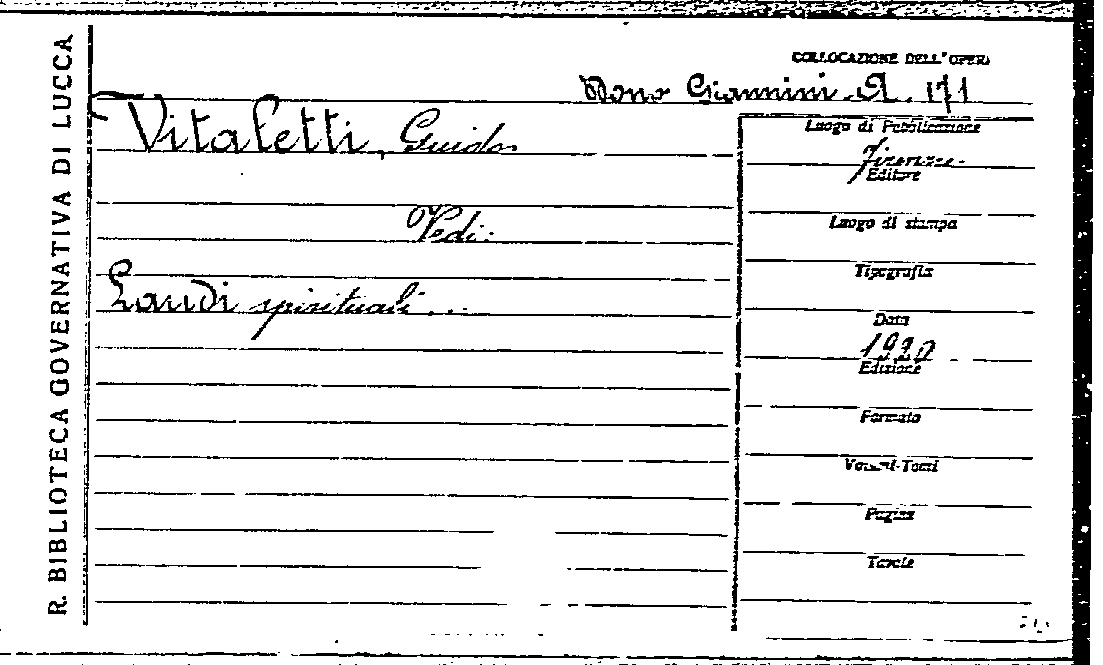 R. BIBLIOTECA GOVERNATIVA DI LUCCA
COLLOCAZIONE DELL'OPERA
Dono Giannini. A. 171
Vitaletti, Guido
Vedi:
Laudi spirituali...
Luogo di Pubblicazione
Firenze
Editore
Luogo di stampa
Tipografia
Data
1920
Edizione
Formato
Volumi-Tomi
Pagine
Tavole